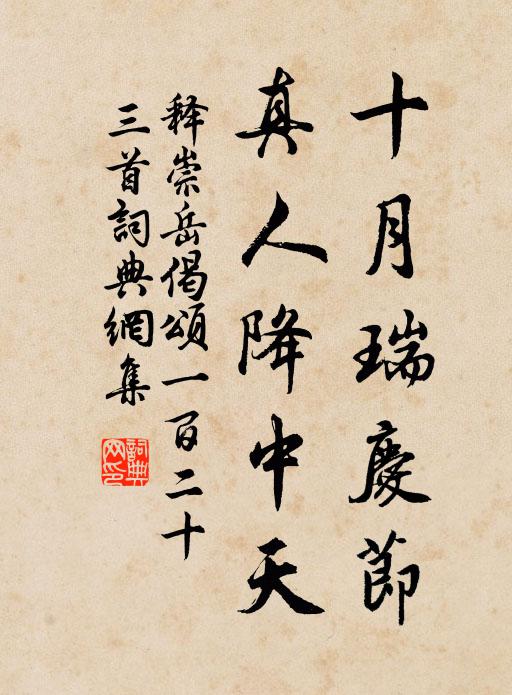 十月瑞慶節
真人降中天
释崇岳偈頌一百二十
三首詞典網集
詞典网印